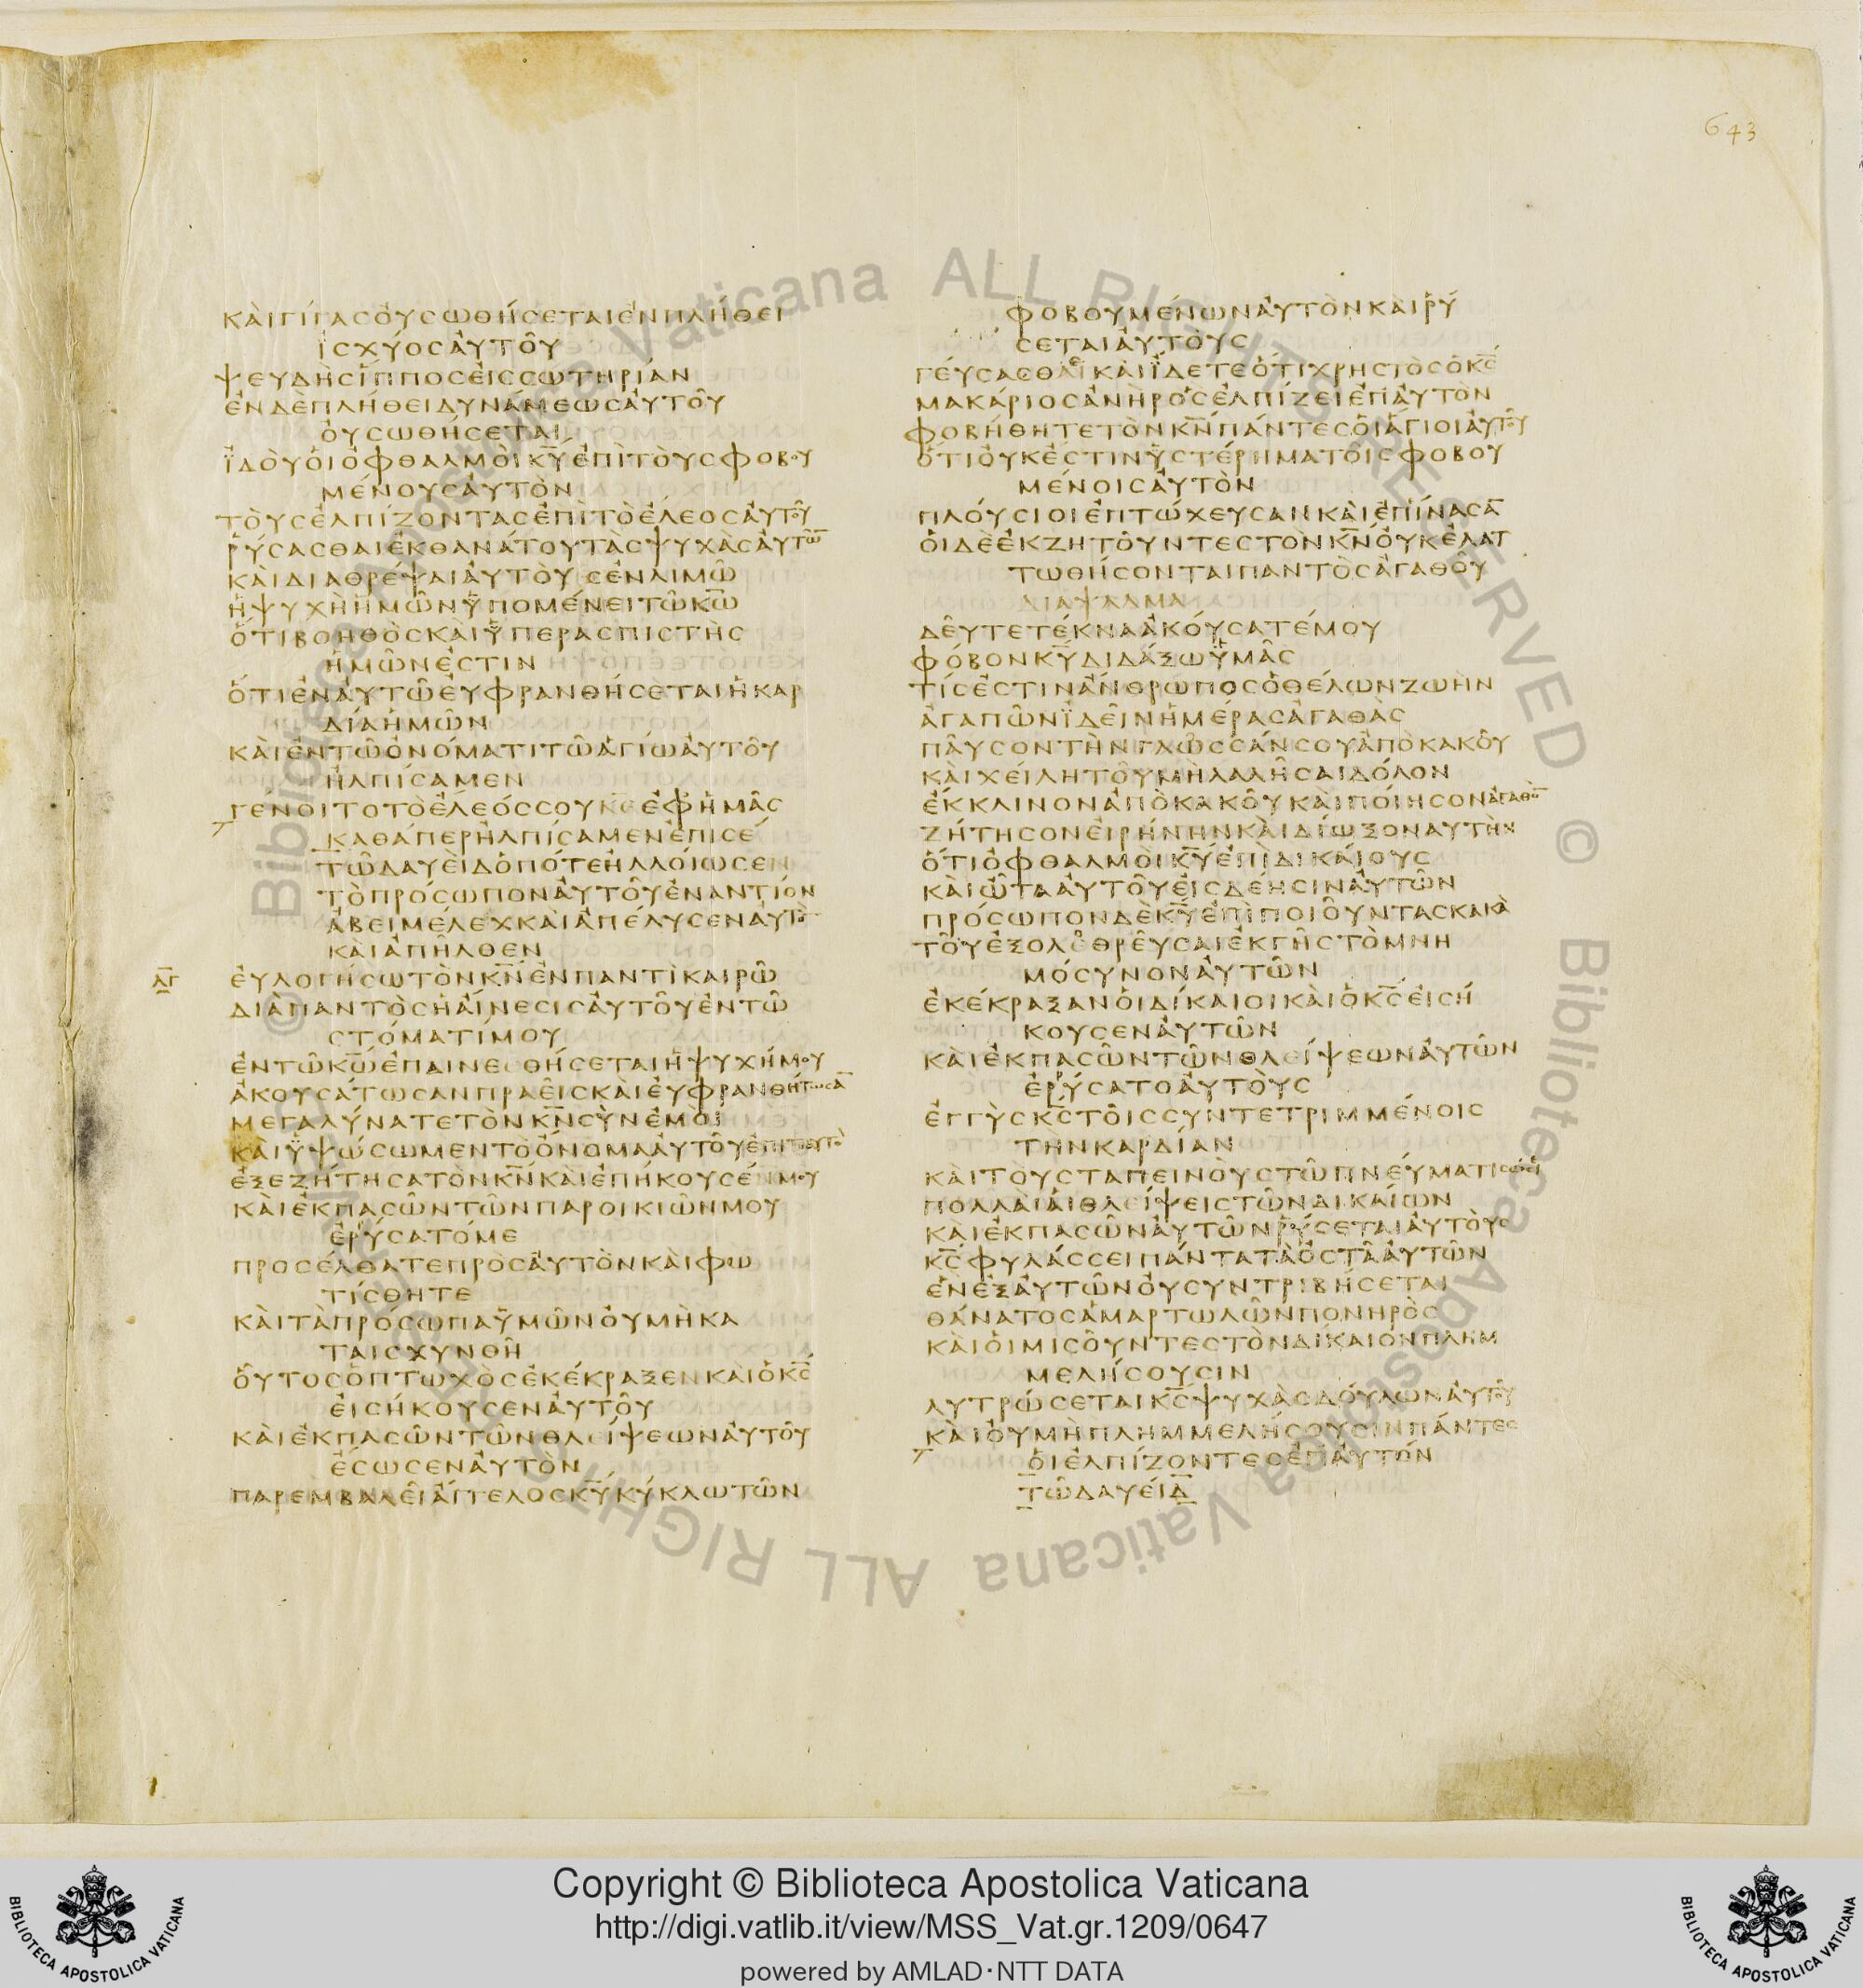 643
ΚΑΙΓΙΓΑСΟΥСΩΘΗСΕΤΑΙΕΝΠΛΗΘΕΙ
ΙСΧΥΟСΑΥΤΟΥ
ΨΕΥΔΗСΙΠΠΟСΕΙССΩΤΗΡΙΑΝ
ΕΝΔΕΠΛΗΘΕΙΔΥΝΑΜΕΩСΑΥΤΟΥ
ΟΥСΩΘΗСΕΤΑΙ
ΪΔΟΥΟΙΟΦΘΑΛΜΟΙΚ̅Υ̅ΕΠΙΤΟΥСΦΟΒΟΥ
ΜΕΝΟΥСΑΥΤΟΝ
ΤΟΥСΕΛΠΙΖΟΝΤΑСΕΠΙΤΟΕΛΕΟСΑΥΤΟΥ
ΡΥСΑСΘΑΙΕΚΘΑΝΑΤΟΥΤΑСΨΥΧΑСΑΥΤΩ̅
ΚΑΙΔΙΑΘΡΕΨΑΙΑΥΤΟΥСΕΝΛΙΜΩ
ΗΨΥΧΗΗΜΩΝΫΠΟΜΕΝΕΙΤΩΚ̅Ω̅
ΟΤΙΒΟΗΘΟСΚΑΙΫΠΕΡΑСΠΙСΤΗС
ΗΜΩΝΕСΤΙΝ
ΟΤΙΕΝΑΥΤΩΕΥΦΡΑΝΘΗСΕΤΑΙΗΚΑΡ
ΔΙΑΗΜΩΝ
ΚΑΙΕΝΤΩΟΝΟΜΑΤΙΤΩΑΓΙΩΑΥΤΟΥ
ΗΛΠΙСΑΜΕΝ
ΓΕΝΟΙΤΟΤΟΕΛΕΟССΟΥΚ̅Ε̅ΕΦΗΜΑС
ΚΑΘΑΠΕΡΗΛΠΙСΑΜΕΝΕΠΙСΕ
ΤΩΔΑΥΕΙΔΟΠΟΤΕΗΛΛΟΙΩСΕΝ
ΤΟΠΡΟСΩΠΟΝΑΥΤΟΥΕΝΑΝΤΙΟΝ
ΑΒΕΙΜΕΛΕΧΚΑΙΑΠΕΛΥСΕΝΑΥΤΟ̅
ΚΑΙΑΠΗΛΘΕΝ
Λ̅Γ̅ ΕΥΛΟΓΗСΩΤΟΝΚ̅Ν̅ΕΝΠΑΝΤΙΚΑΙΡΩ
ΔΙΑΠΑΝΤΟСΗΑΙΝΕСΙСΑΥΤΟΥΕΝΤΩ
СΤΟΜΑΤΙΜΟΥ
ΕΝΤΩΚ̅Ω̅ΕΠΑΙΝΕСΘΗСΕΤΑΙΗΨΥΧΗΜΟΥ
ΑΚΟΥСΑΤΩСΑΝΠΡΑΕΙСΚΑΙΕΥΦΡΑΝΘΗΤΩСΑ̅
ΜΕΓΑΛΥΝΑΤΕΤΟΝΚ̅Ν̅СΥΝΕΜΟΙ
ΚΑΙΫΨΩСΩΜΕΝΤΟΟΝΟΜΑΑΥΤΟΥΕΠΙΤΟΑΥΤΟ
ΕΞΕΖΗΤΗСΑΤΟΝΚ̅Ν̅ΚΑΙΕΠΗΚΟΥСΕΝΜΟΥ
ΚΑΙΕΚΠΑСΩΝΤΩΝΠΑΡΟΙΚΙΩΝΜΟΥ
ΕΡΥСΑΤΟΜΕ
ΠΡΟСΕΛΘΑΤΕΠΡΟСΑΥΤΟΝΚΑΙΦΩ
ΤΙСΘΗΤΕ
ΚΑΙΤΑΠΡΟСΩΠΑΫΜΩΝΟΥΜΗΚΑ
ΤΑΙСΧΥΝΘΗ
ΟΥΤΟСΟΠΤΩΧΟСΕΚΕΚΡΑΞΕΝΚΑΙΟΚ̅С̅
ΕΙСΗΚΟΥСΕΝΑΥΤΟΥ
ΚΑΙΕΚΠΑСΩΝΤΩΝΘΛΕΙΨΕΩΝΑΥΤΟΥ
ΕСΩСΕΝΑΥΤΟΝ
ΠΑΡΕΜΒΑΛΕΙΑΓΓΕΛΟСΚ̅Υ̅ΚΥΚΛΩΤΩΝ
ΦΟΒΟΥΜΕΝΩΝΑΥΤΟΝΚΑΙΡΥ
СΕΤΑΙΑΥΤΟΥС
ΓΕΥСΑСΘΑΙΚΑΙΪΔΕΤΕΟΤΙΧΡΗСΤΟСΟΚ̅С̅
ΜΑΚΑΡΙΟСΑΝΗΡΟСΕΛΠΙΖΕΙΕΠΑΥΤΟΝ
ΦΟΒΗΘΗΤΕΤΟΝΚ̅Ν̅ΠΑΝΤΕСΟΙΑΓΙΟΙΑΥΤΟΥ
ΟΤΙΟΥΚΕСΤΙΝΫСΤΕΡΗΜΑΤΟΙСΦΟΒΟΥ
ΜΕΝΟΙСΑΥΤΟΝ
ΠΛΟΥСΙΟΙΕΠΤΩΧΕΥСΑΝΚΑΙΕΠΙΝΑСΑ̅
ΟΙΔΕΕΚΖΗΤΟΥΝΤΕСΤΟΝΚ̅Ν̅ΟΥΚΕΛΑΤ
ΤΩΘΗСΟΝΤΑΙΠΑΝΤΟСΑΓΑΘΟΥ
ΔΙΑΨΑΛΜΑ
ΔΕΥΤΕΤΕΚΝΑΑΚΟΥСΑΤΕΜΟΥ
ΦΟΒΟΝΚ̅Υ̅ΔΙΔΑΞΩΫΜΑС
ΤΙСΕСΤΙΝΑΝΘΡΩΠΟСΟΘΕΛΩΝΖΩΗΝ
ΑΓΑΠΩΝΪΔΕΙΝΗΜΕΡΑСΑΓΑΘΑС
ΠΑΥСΟΝΤΗΝΓΛΩССΑΝСΟΥΑΠΟΚΑΚΟΥ
ΚΑΙΧΕΙΛΗΤΟΥΜΗΛΑΛΗСΑΙΔΟΛΟΝ
ΕΚΚΛΙΝΟΝΑΠΟΚΑΚΟΥΚΑΙΠΟΙΗСΟΝΑΓΑΘΟ̅
ΖΗΤΗСΟΝΕΙΡΗΝΗΝΚΑΙΔΙΩΞΟΝΑΥΤΗΝ
ΟΤΙΟΦΘΑΛΜΟΙΚ̅Υ̅ΕΠΙΔΙΚΑΙΟΥС
ΚΑΙΩΤΑΑΥΤΟΥΕΙСΔΕΗСΙΝΑΥΤΩΝ
ΠΡΟСΩΠΟΝΔΕΚ̅Υ̅ΕΠΙΠΟΙΟΥΝΤΑСΚΑΚΑ
ΤΟΥΕΞΟΛΕΘΡΕΥСΑΙΕΚΓΗСΤΟΜΝΗ
ΜΟСΥΝΟΝΑΥΤΩΝ
ΕΚΕΚΡΑΞΑΝΟΙΔΙΚΑΙΟΙΚΑΙΟΚ̅С̅ΕΙСΗ
ΚΟΥСΕΝΑΥΤΩΝ
ΚΑΙΕΚΠΑСΩΝΤΩΝΘΛΕΙΨΕΩΝΑΥΤΩΝ
ΕΡΥСΑΤΟΑΥΤΟΥС
ΕΓΓΥСΚ̅С̅ΤΟΙССΥΝΤΕΤΡΙΜΜΕΝΟΙС
ΤΗΝΚΑΡΔΙΑΝ
ΚΑΙΤΟΥСΤΑΠΕΙΝΟΥСΤΩΠΝΕΥΜΑΤΙСΩСΕΙ
ΠΟΛΛΑΙΑΙΘΛΕΙΨΕΙСΤΩΝΔΙΚΑΙΩΝ
ΚΑΙΕΚΠΑСΩΝΑΥΤΩΝΡΥСΕΤΑΙΑΥΤΟΥС
Κ̅С̅ΦΥΛΑССΕΙΠΑΝΤΑΤΑΟСΤΑΑΥΤΩΝ
ΕΝΕΞΑΥΤΩΝΟΥСΥΝΤΡΙΒΗСΕΤΑΙ
ΘΑΝΑΤΟСΑΜΑΡΤΩΛΩΝΠΟΝΗΡΟС
ΚΑΙΟΙΜΙСΟΥΝΤΕСΤΟΝΔΙΚΑΙΟΝΠΛΗΜ
ΜΕΛΗСΟΥСΙΝ
ΛΥΤΡΩСΕΤΑΙΚ̅С̅ΨΥΧΑСΔΟΥΛΩΝΑΥΤΟΥ
ΚΑΙΟΥΜΗΠΛΗΜΜΕΛΗСΟΥСΙΝΠΑΝΤΕС
ΟΙΕΛΠΙΖΟΝΤΕСΕΠΑΥΤΟΝ
ΤΩΔΑΥΕΙΔ
© Biblioteca Apostolica Vaticana ALL RIGHTS RESERVED © Biblioteca Apostolica Vaticana ALL RIGHTS
BIBLIOTECA APOSTOLICA VATICANA
Copyright © Biblioteca Apostolica Vaticana
http://digi.vatlib.it/view/MSS_Vat.gr.1209/0647
powered by AMLAD·NTT DATA
BIBLIOTECA APOSTOLICA VATICANA